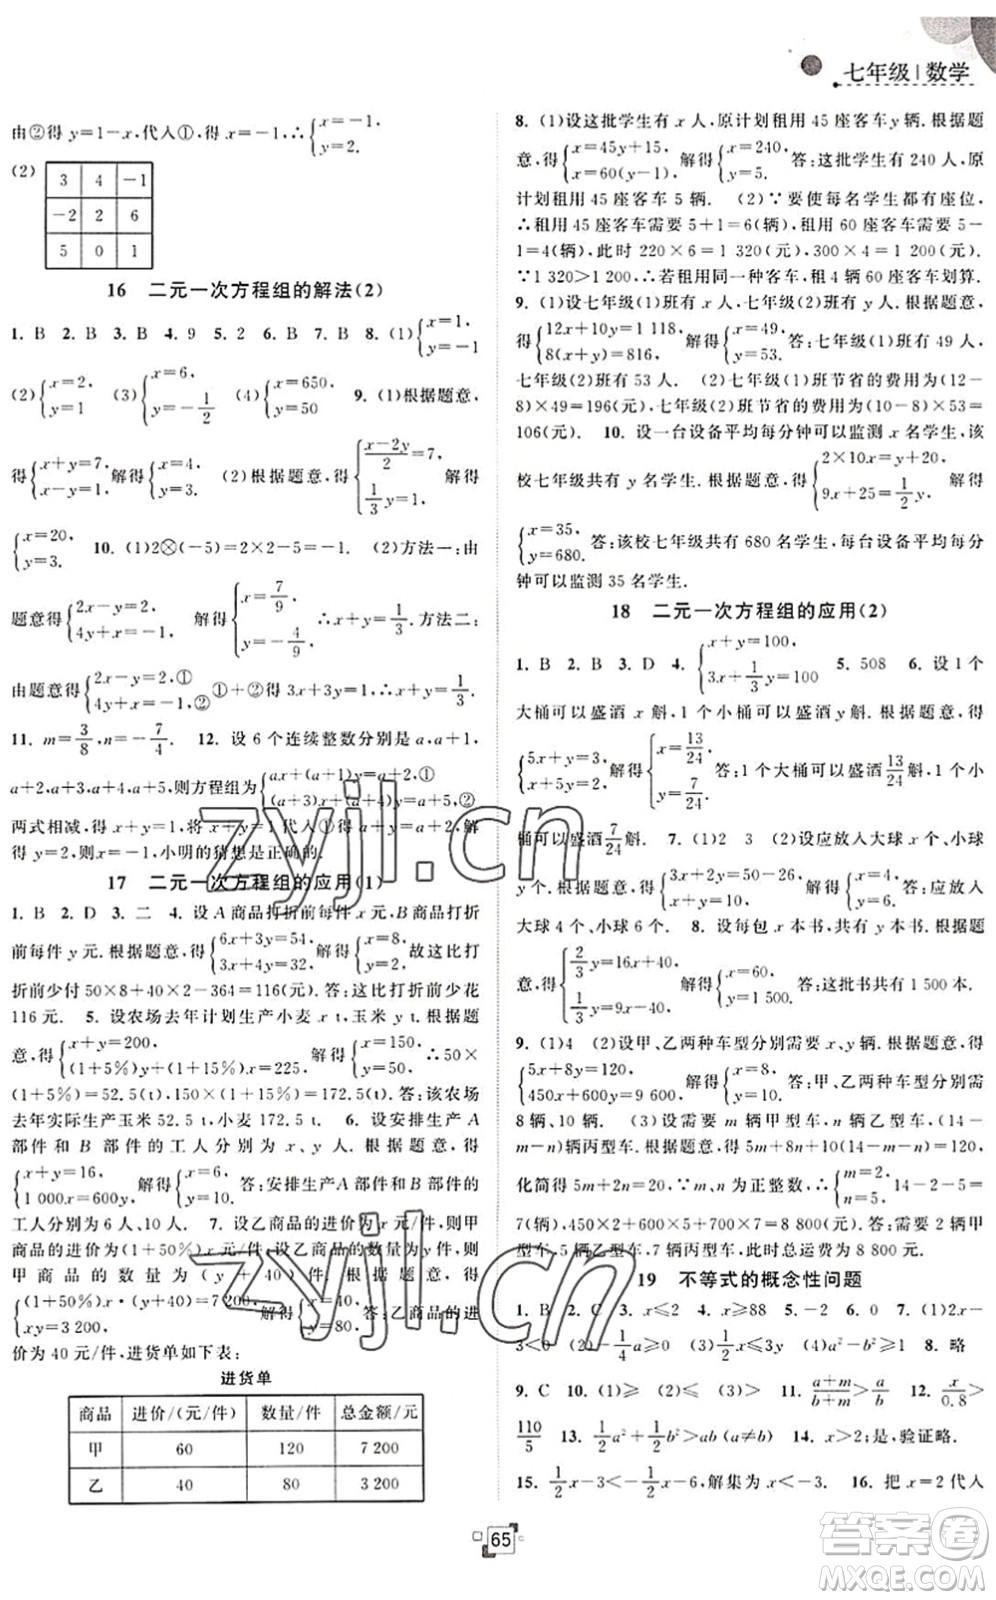 七年级 | 数学
由②得 y=1-x,代入①,得 x=-1,∴{x=-1, y=2.
(2)
3 4 -1
-2 2 6
5 0 1
16 二元一次方程组的解法(2)
1. B 2. B 3. B 4. 9 5. 2 6. B 7. B 8. (1){x=1, y=-1
(2){x=2, y=1 (3){x=6, y=-1/2 (4){x=650, y=50 9. (1)根据题意,
得{x+y=7, x-y=1, 解得{x=4, y=3. (2)根据题意,得{(x-2y)/2=7, 1/3 y=1, 解得
{x=20, y=3. 10. (1)2⊗(-5)=2×2-5=-1. (2)方法一:由
题意得{2x-y=2, 4y+x=-1, 解得{x=7/9, y=-4/9, ∴x+y=1/3. 方法二:
由题意得{2x-y=2,① 4y+x=-1,② ①+②得 3x+3y=1,∴x+y=1/3.
11. m=3/8, n=-7/4. 12. 设 6 个连续整数分别是 a,a+1,
a+2,a+3,a+4,a+5,则方程组为{ax+(a+1)y=a+2,① (a+3)x+(a+4)y=a+5,②
两式相减,得 x+y=1,将 x+y=1 代入①得 a+y=a+2,解
得 y=2,则 x=-1,小明的猜想是正确的.
17 二元一次方程组的应用(1)
1. B 2. D 3. 二 4. 设 A 商品打折前每件 x 元,B 商品打折
前每件 y 元. 根据题意,得{6x+3y=54, 3x+4y=32, 解得{x=8, y=2. 故这比打
折前少付 50×8+40×2-364=116(元). 答:这比打折前少花
116 元. 5. 设农场去年计划生产小麦 x t,玉米 y t. 根据题
意,得{x+y=200, (1+5%)y+(1+15%)x=225, 解得{x=150, y=50, ∴50×
(1+5%)=52.5(t),150×(1+15%)=172.5(t). 答:该农场
去年实际生产玉米 52.5 t,小麦 172.5 t. 6. 设安排生产 A
部件和 B 部件的工人分别为 x 人、y 人. 根据题意,得
{x+y=16, 1 000x=600y, 解得{x=6, y=10. 答:安排生产A 部件和 B 部件的
工人分别为 6 人、10 人. 7. 设乙商品的进价为 x 元/件,则甲
商品的进价为(1+50%)x 元/件,乙商品的数量为 y 件,则
甲商品的数量为(y+40)件. 根据题意,得
{(1+50%)x·(y+40)=7 200, xy=3 200, 解得{x=40, y=80, 答:乙商品的进
价为 40 元/件,进货单如下表:
进货单
商品 进价/(元/件) 数量/件 总金额/元
甲 60 120 7 200
乙 40 80 3 200
8. (1)设这批学生有 x 人,原计划租用 45 座客车 y 辆. 根据题
意,得{x=45y+15, x=60(y-1), 解得{x=240, y=5. 答:这批学生有 240 人,原
计划租用 45 座客车 5 辆. (2)∵要使每名学生都有座位,
∴租用 45 座客车需要 5+1=6(辆),租用 60 座客车需要 5-
1=4(辆),此时 220×6=1 320(元),300×4=1 200(元).
∵1 320>1 200,∴若租用同一种客车,租 4 辆 60 座客车划算.
9. (1)设七年级(1)班有 x 人,七年级(2)班有 y 人. 根据题意,
得{12x+10y=1 118, 8(x+y)=816, 解得{x=49, y=53. 答:七年级(1)班有 49 人,
七年级(2)班有 53 人. (2)七年级(1)班节省的费用为(12-
8)×49=196(元),七年级(2)班节省的费用为(10-8)×53=
106(元). 10. 设一台设备平均每分钟可以监测 x 名学生,该
校七年级共有 y 名学生. 根据题意,得{2×10x=y+20, 9x+25=1/2 y, 解得
{x=35, y=680. 答:该校七年级共有 680 名学生,每台设备平均每分
钟可以监测 35 名学生.
18 二元一次方程组的应用(2)
1. B 2. B 3. D 4. {x+y=100, 3x+1/3 y=100 5. 508 6. 设 1 个
大桶可以盛酒 x 斛,1 个小桶可以盛酒 y 斛. 根据题意,得
{5x+y=3, x+5y=2, 解得{x=13/24, y=7/24. 答:1 个大桶可以盛酒13/24斛,1 个小
桶可以盛酒7/24斛. 7. (1)2 3 (2)设应放入大球 x 个,小球
y 个. 根据题意,得{3x+2y=50-26, x+y=10, 解得{x=4, y=6. 答:应放入
大球 4 个,小球 6 个. 8. 设每包 x 本书,共有 y 本书. 根据题
意,得{2/3 y=16x+40, 1/3 y=9x-40, 解得{x=60, y=1 500. 答:这批书共有 1 500 本.
9. (1)4 (2)设甲、乙两种车型分别需要 x、y 辆. 根据题意,得
{5x+8y=120, 450x+600y=9 600, 解得{x=8, y=10. 答:甲、乙两种车型分别需
8 辆、10 辆. (3)设需要 m 辆甲型车,n 辆乙型车,(14-
m-n)辆丙型车. 根据题意,得 5m+8n+10(14-m-n)=120,
化简得 5m+2n=20,∵m、n 为正整数,∴{m=2, n=5, 14-2-5=
7(辆),450×2+600×5+700×7=8 800(元). 答:需要 2 辆甲
型车,5 辆乙型车,7 辆丙型车,此时总运费为 8 800 元.
19 不等式的概念性问题
1. B 2. C 3. x≤2 4. x≥88 5. -2 6. 0 7. (1)2x-
3<0 (2)-1/4 a≥0 (3)1/2 x≤3y (4)a²-b²≥1 8. 略
9. C 10. (1)≥ (2)≤ (3)≥ 11. (a+m)/(b+m)>a/b 12. x/0.8>
110/5 13. 1/2 a²+1/2 b²>ab (a≠b) 14. x>2;是,验证略.
15. 1/2 x-3<-1/2 x-6,解集为 x<-3. 16. 把 x=2 代入
65
zyjl.cn
zyjl.cn
答案卷